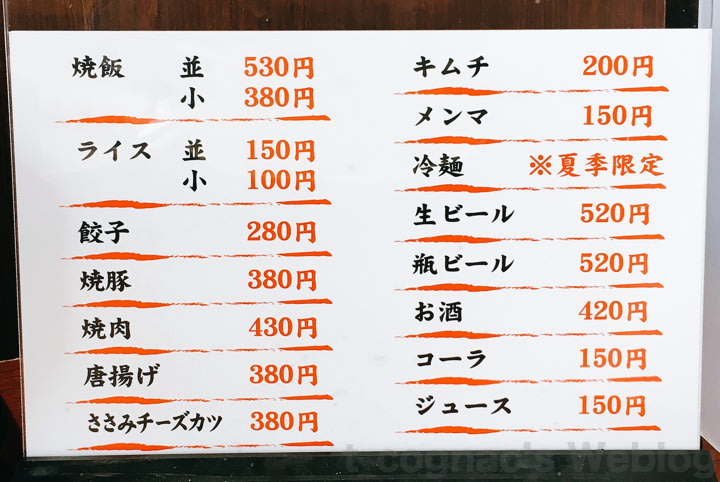 焼飯 並 530円
小 380円
ライス 並 150円
小 100円
餃子 280円
焼豚 380円
焼肉 430円
唐揚げ 380円
ささみチーズカツ 380円
キムチ 200円
メンマ 150円
冷麺 ※夏季限定
生ビール 520円
瓶ビール 520円
お酒 420円
コーラ 150円
ジュース 150円
t-cognac's Weblog